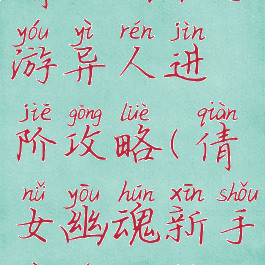 yóu yì rén jìn
游异人进
jiē gōng lüè qiàn
阶攻略(倩
nǚ yōu hún xīn shǒu
女幽魂新手